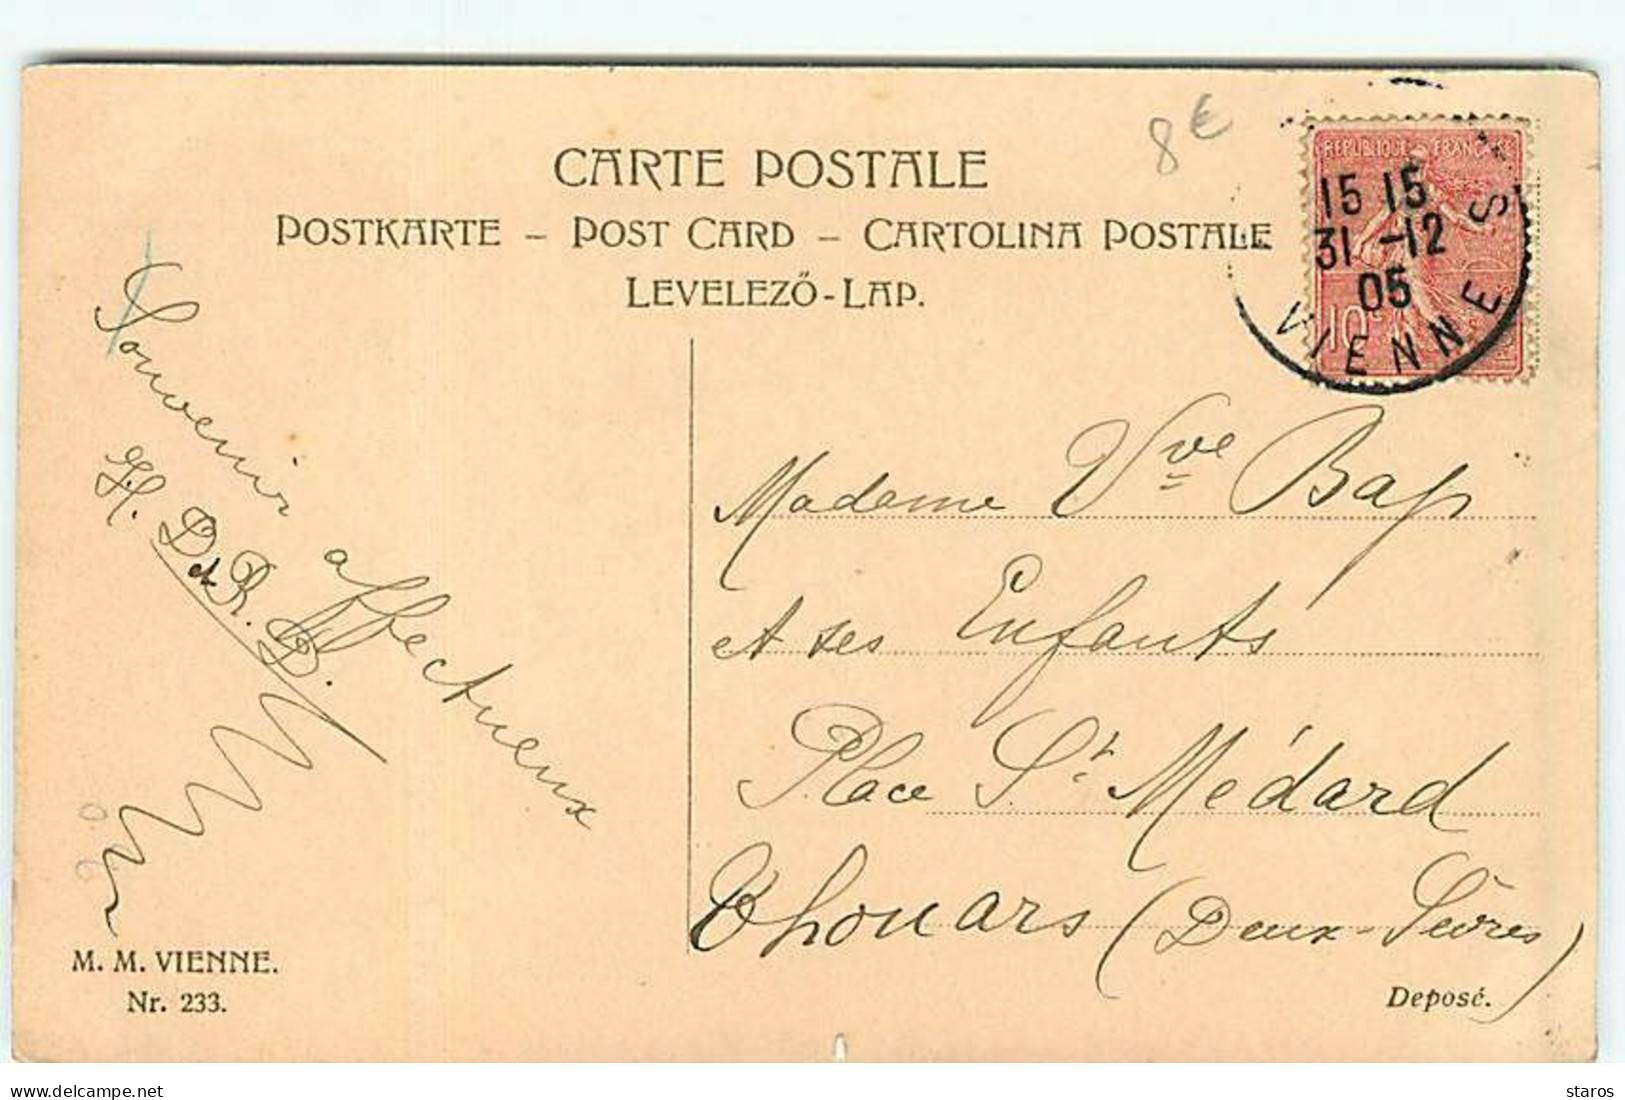 CARTE POSTALE
POSTKARTE – POST CARD – CARTOLINA POSTALE
LEVELEZŐ-LAP.
8€
REPUBLIQUE FRANÇAISE
15 15
31 -12
05
10c
VIENNE S
Souvenir affectueux
H. D et R. D.
Madame Vve Bap
et ses Enfants
Place St Médard
Thouars (Deux-Sèvres)
M. M. VIENNE.
Nr. 233.
Deposé.
delcampe.net
staros